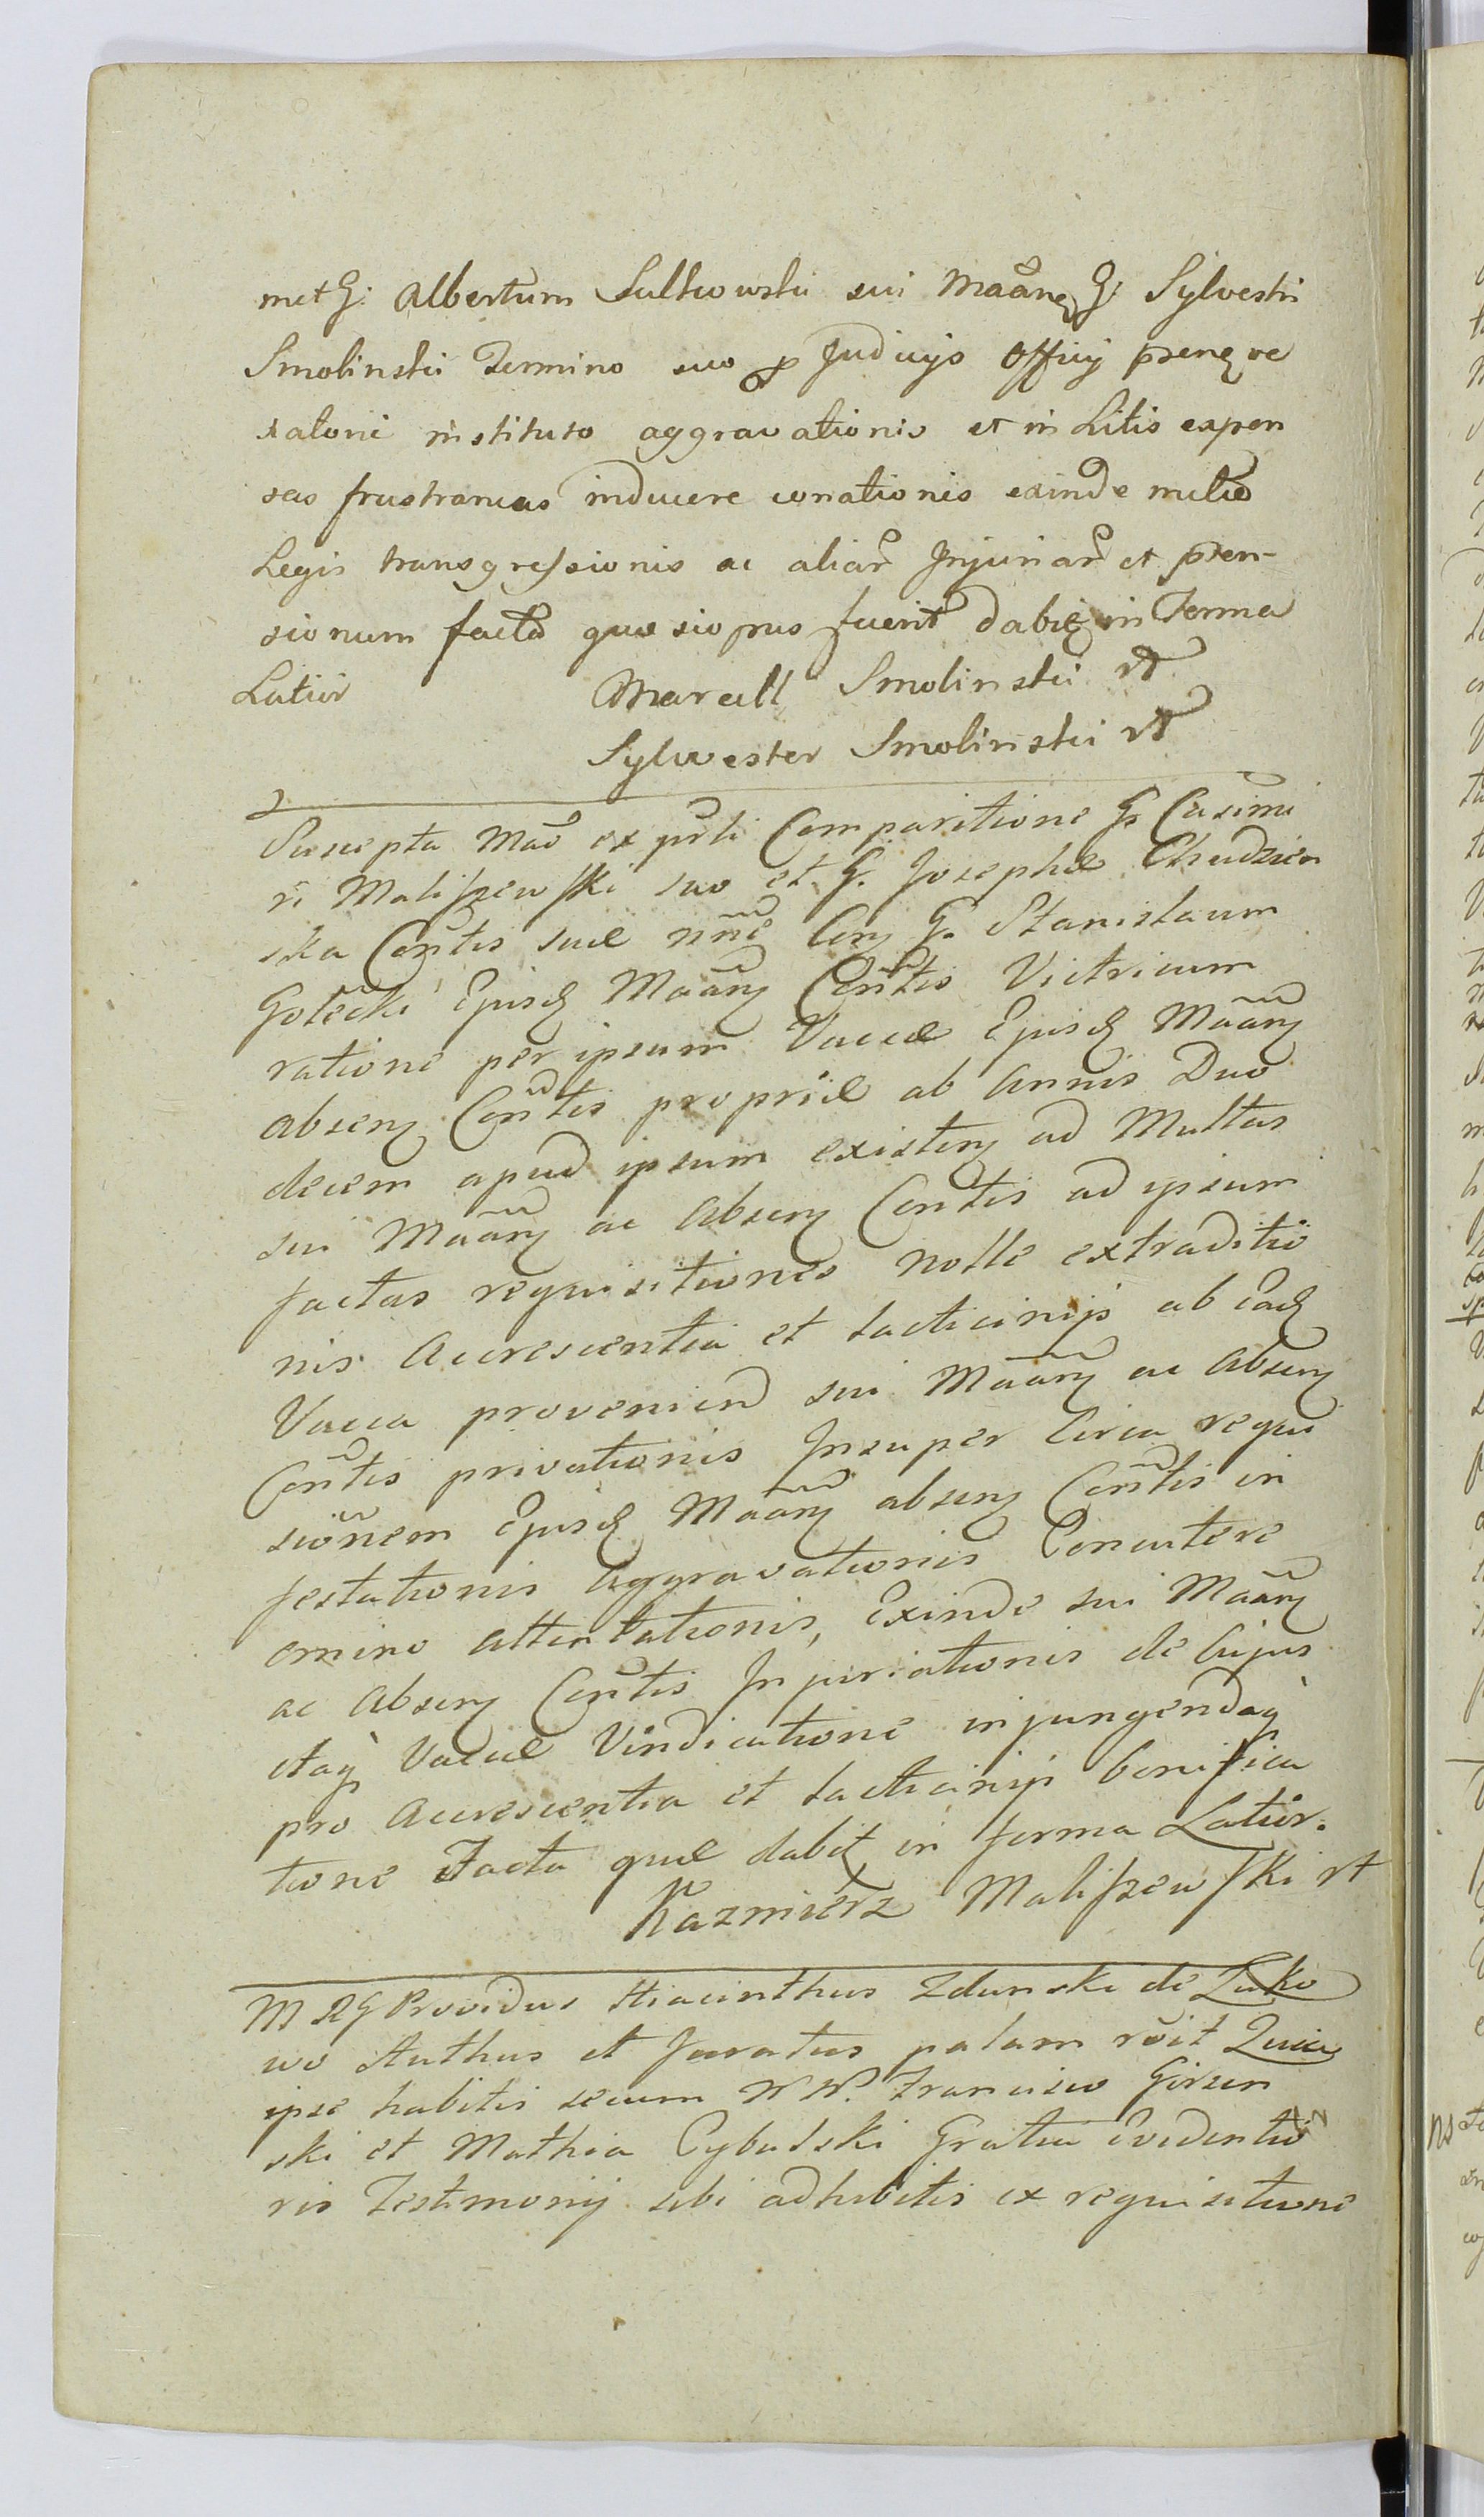 met G: Albertum Sulkowski sui Maãne G: Sylvestri
Smolinski Termino suo p Judicijs Officij prensve
salone instituto aggravationis et in Litis expen
sas frustraneas inducere conationis exinde
Legis transgressionis ac aliar Injuriar et pren-
sionum facta quae si opus fuerit dabit in Forma
Latior Marcell Smolinski
Sylwester Smolinski
Suscepta Mão ex prti Comparitione G. Casimi
ri Maliszewski suo et G. Josephae Chudzien
ska Contis suae nne Con G. Stanislaum
Golecki Ejusd Maãny Conttis Victricum
ratione per ipsum Vaccae Ejusd Maãny
absen Conttis propriae ab Annis Duo
decem apud ipsum existen ad Multas
sui Maãny ac Absen Contis ad ipsum
factas requisitiones nolle extraditio
nis Accrescentia et lacticinijs ab ead
Vacca provenien sui Maãny ac Absen
Conttis privationis Insuper Circa requi
sionem Ejusd Maãny absen Conttis in
festationis Aggravationis Concutere
omino attentationis, Exinde sui Maãny
ac Absen Conttis Injuriationis de Cujus
itaq Vaccae Vindicatione injungendaq
pro Accrescentia et lacticinijs bonifica
tione Facta quae dabit in forma Latior.
Kazmierz Maliszewski
Providus Hiacinthus Zdunski de Zuko
wo Authus et Juratus palam roit Quia
ipse habitis secum N N. Francisco Girzen
ski et Mathia Cybulski Gratia Evidentio
ris Testimonij sibi adhibitis ex requisitione